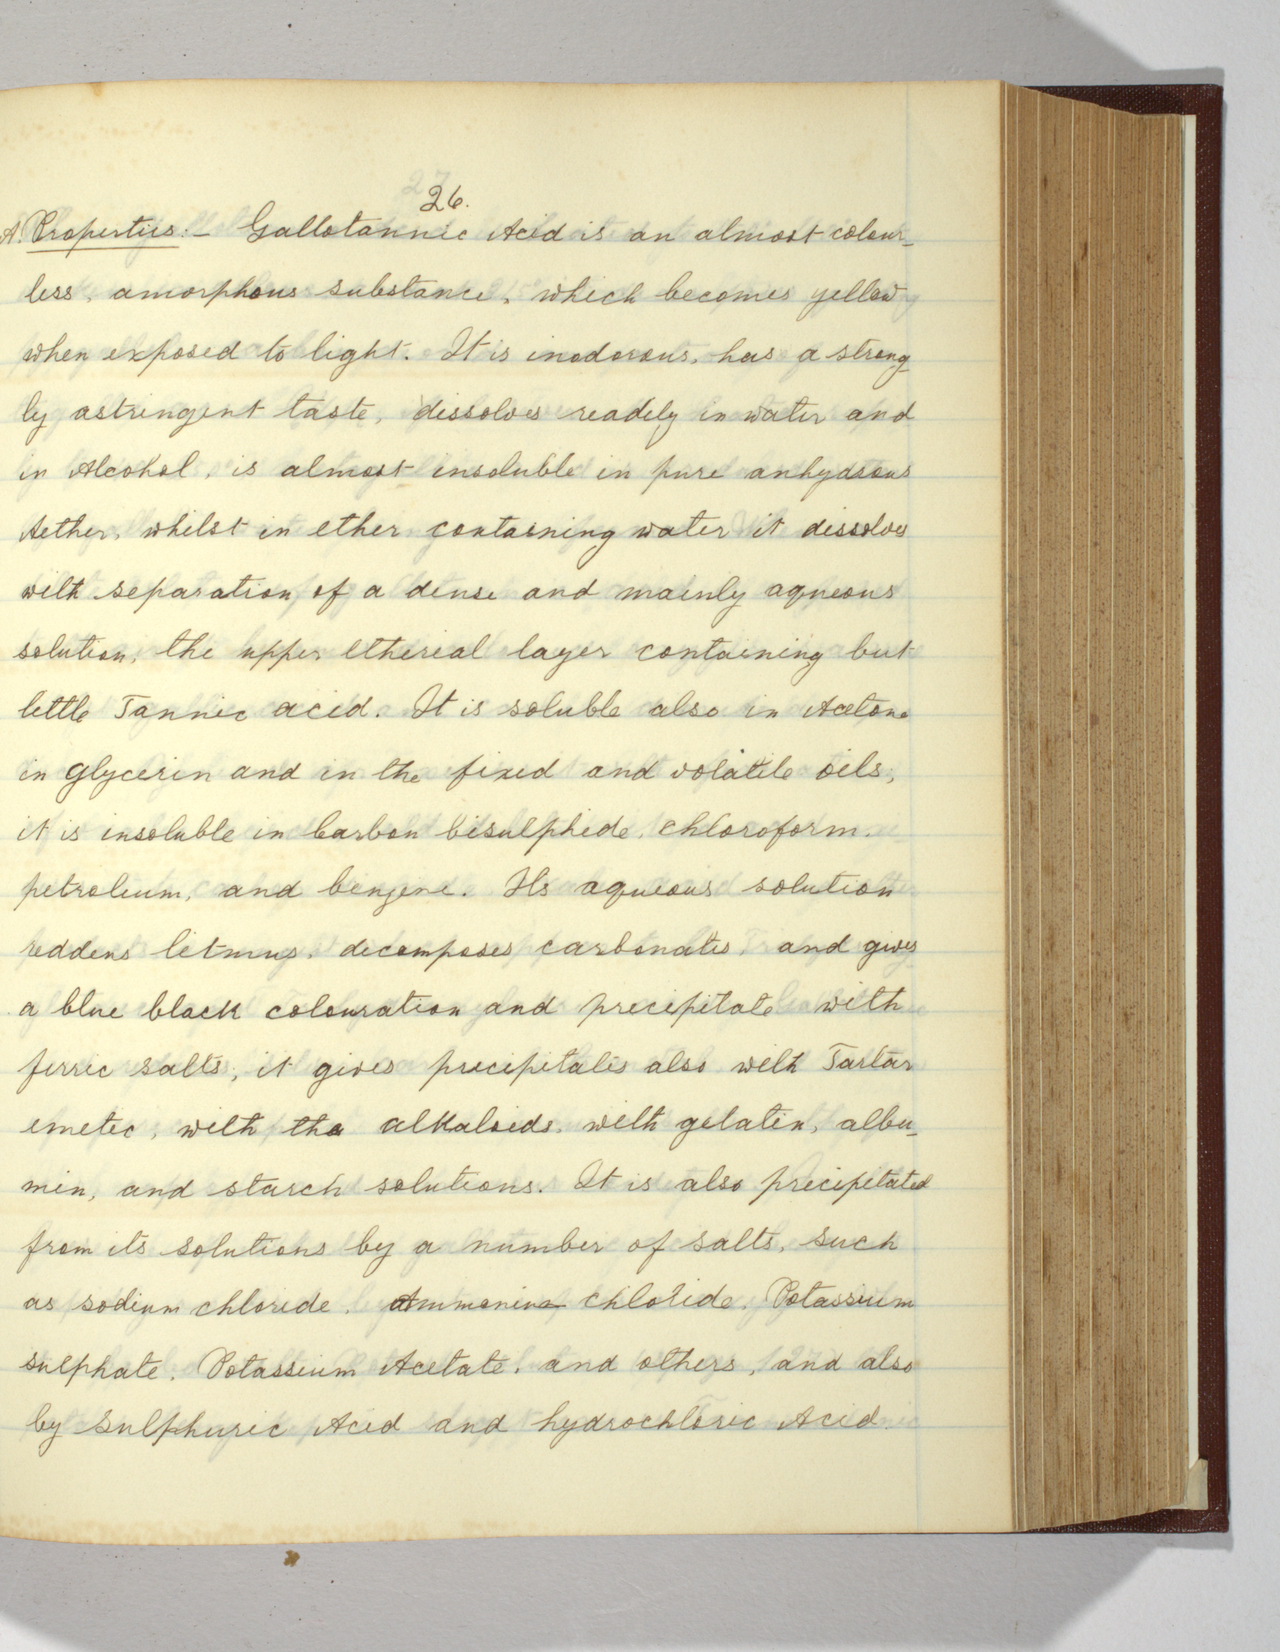 26.
A. Properties.- Gallotannic Acid is an almost colour-
less, amorphous substance, which becomes yellow
when exposed to light. It is inodorous, has a strong
ly astringent taste, dissolves readily in water and
in Alcohol, is almost insoluble in pure anhydrous
Aether, whilst in ether containing water it dissolves
with separation of a dense and mainly aqueous
solution, the upper ethereal layer containing but
little Tannic acid. It is soluble also in Acetone
in glycerin and in the fixed and volatile oils,
it is insoluble in Carbon bisulphide, chloroform.
petroleum, and benzene. Its aqueous solution
reddens litmus, decomposes carbonates, and gives
a blue black colouration and precipitate with
ferric salts, it gives precipitates also with Tartar
emetic, with the alkaloids, with gelatin, albu-
min, and starch solutions. It is also precipitated
from its solutions by a number of salts, such
as sodium chloride, Ammonium chloride, Potassium
sulphate, Potassium Acetate, and others, and also
by Sulphuric Acid and hydrochloric Acid.